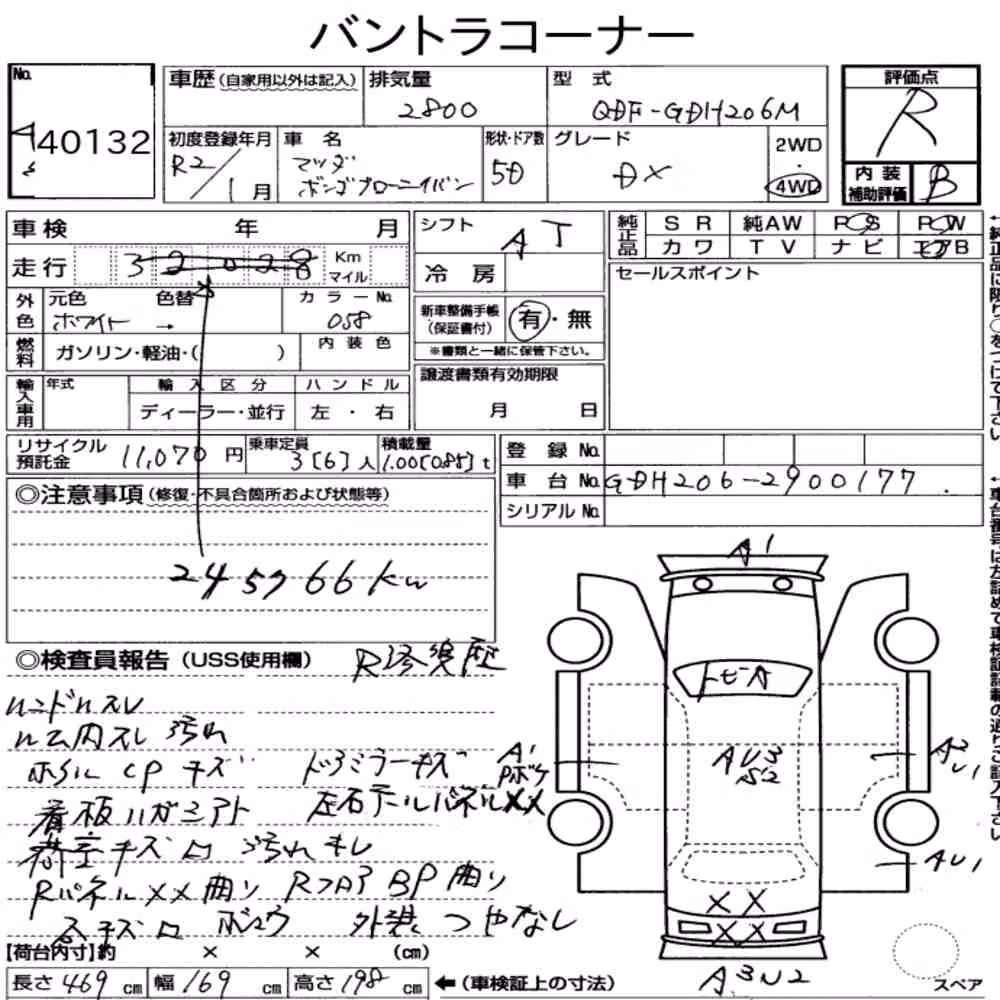 バントラコーナー
No.
40132
車歴 (自家用以外は記入)
排気量
2800
型 式
QDF-GDH206M
評価点
R
初度登録年月
R2/1月
車 名
マツダ
ボンゴブローニイバン
形状・ドア数
5D
グレード
DX
2WD
・
4WD
内 装
補助評価
B
車検 年 月
走行 32028 Km
マイル
シフト
AT
冷 房
純正品
S R 純AW P S P W
カ ワ T V ナ ビ エアB
セールスポイント
外色
元色 色替
ホワイト →
カラーNo.
058
新車整備手帳
(保証書付)
有・無
※書類と一緒に保管下さい。
燃料
ガソリン・軽油・( )
内 装 色
譲渡書類有効期限
月 日
輸入車用
年式
輸 入 区 分
ディーラー・並行
ハ ン ド ル
左 ・ 右
リサイクル
預託金
11,070 円
乗車定員
3[6]人
積載量
1.00[0.85]t
登 録 No.
車 台 No. GDH206-2900177
シリアル No.
◎注意事項 (修復・不具合箇所および状態等)
245766km
◎検査員報告 (USS使用欄)
R修復歴
ハンドルスレ
ルーム内スレ 汚れ
ホイルCPキズ ドアミラーキズ
看板ハガシアト 左右テールパネルXX
荷室キズ凹汚れキレ
RパネルXX曲り RフロアBP曲り
キズ凹 外装つやなし
A1
トビA
AU3
S2
A1
Pボケ
A2
U1
AU1
XX
XX
A3U2
【荷台内寸】約 × × (cm)
長さ 469 cm 幅 169 cm 高さ 198 cm ←(車検証上の寸法)
スペア
←純正品に限り○をつけて下さい。
←車台番号は左詰めで車検証記載の通りご記入下さい